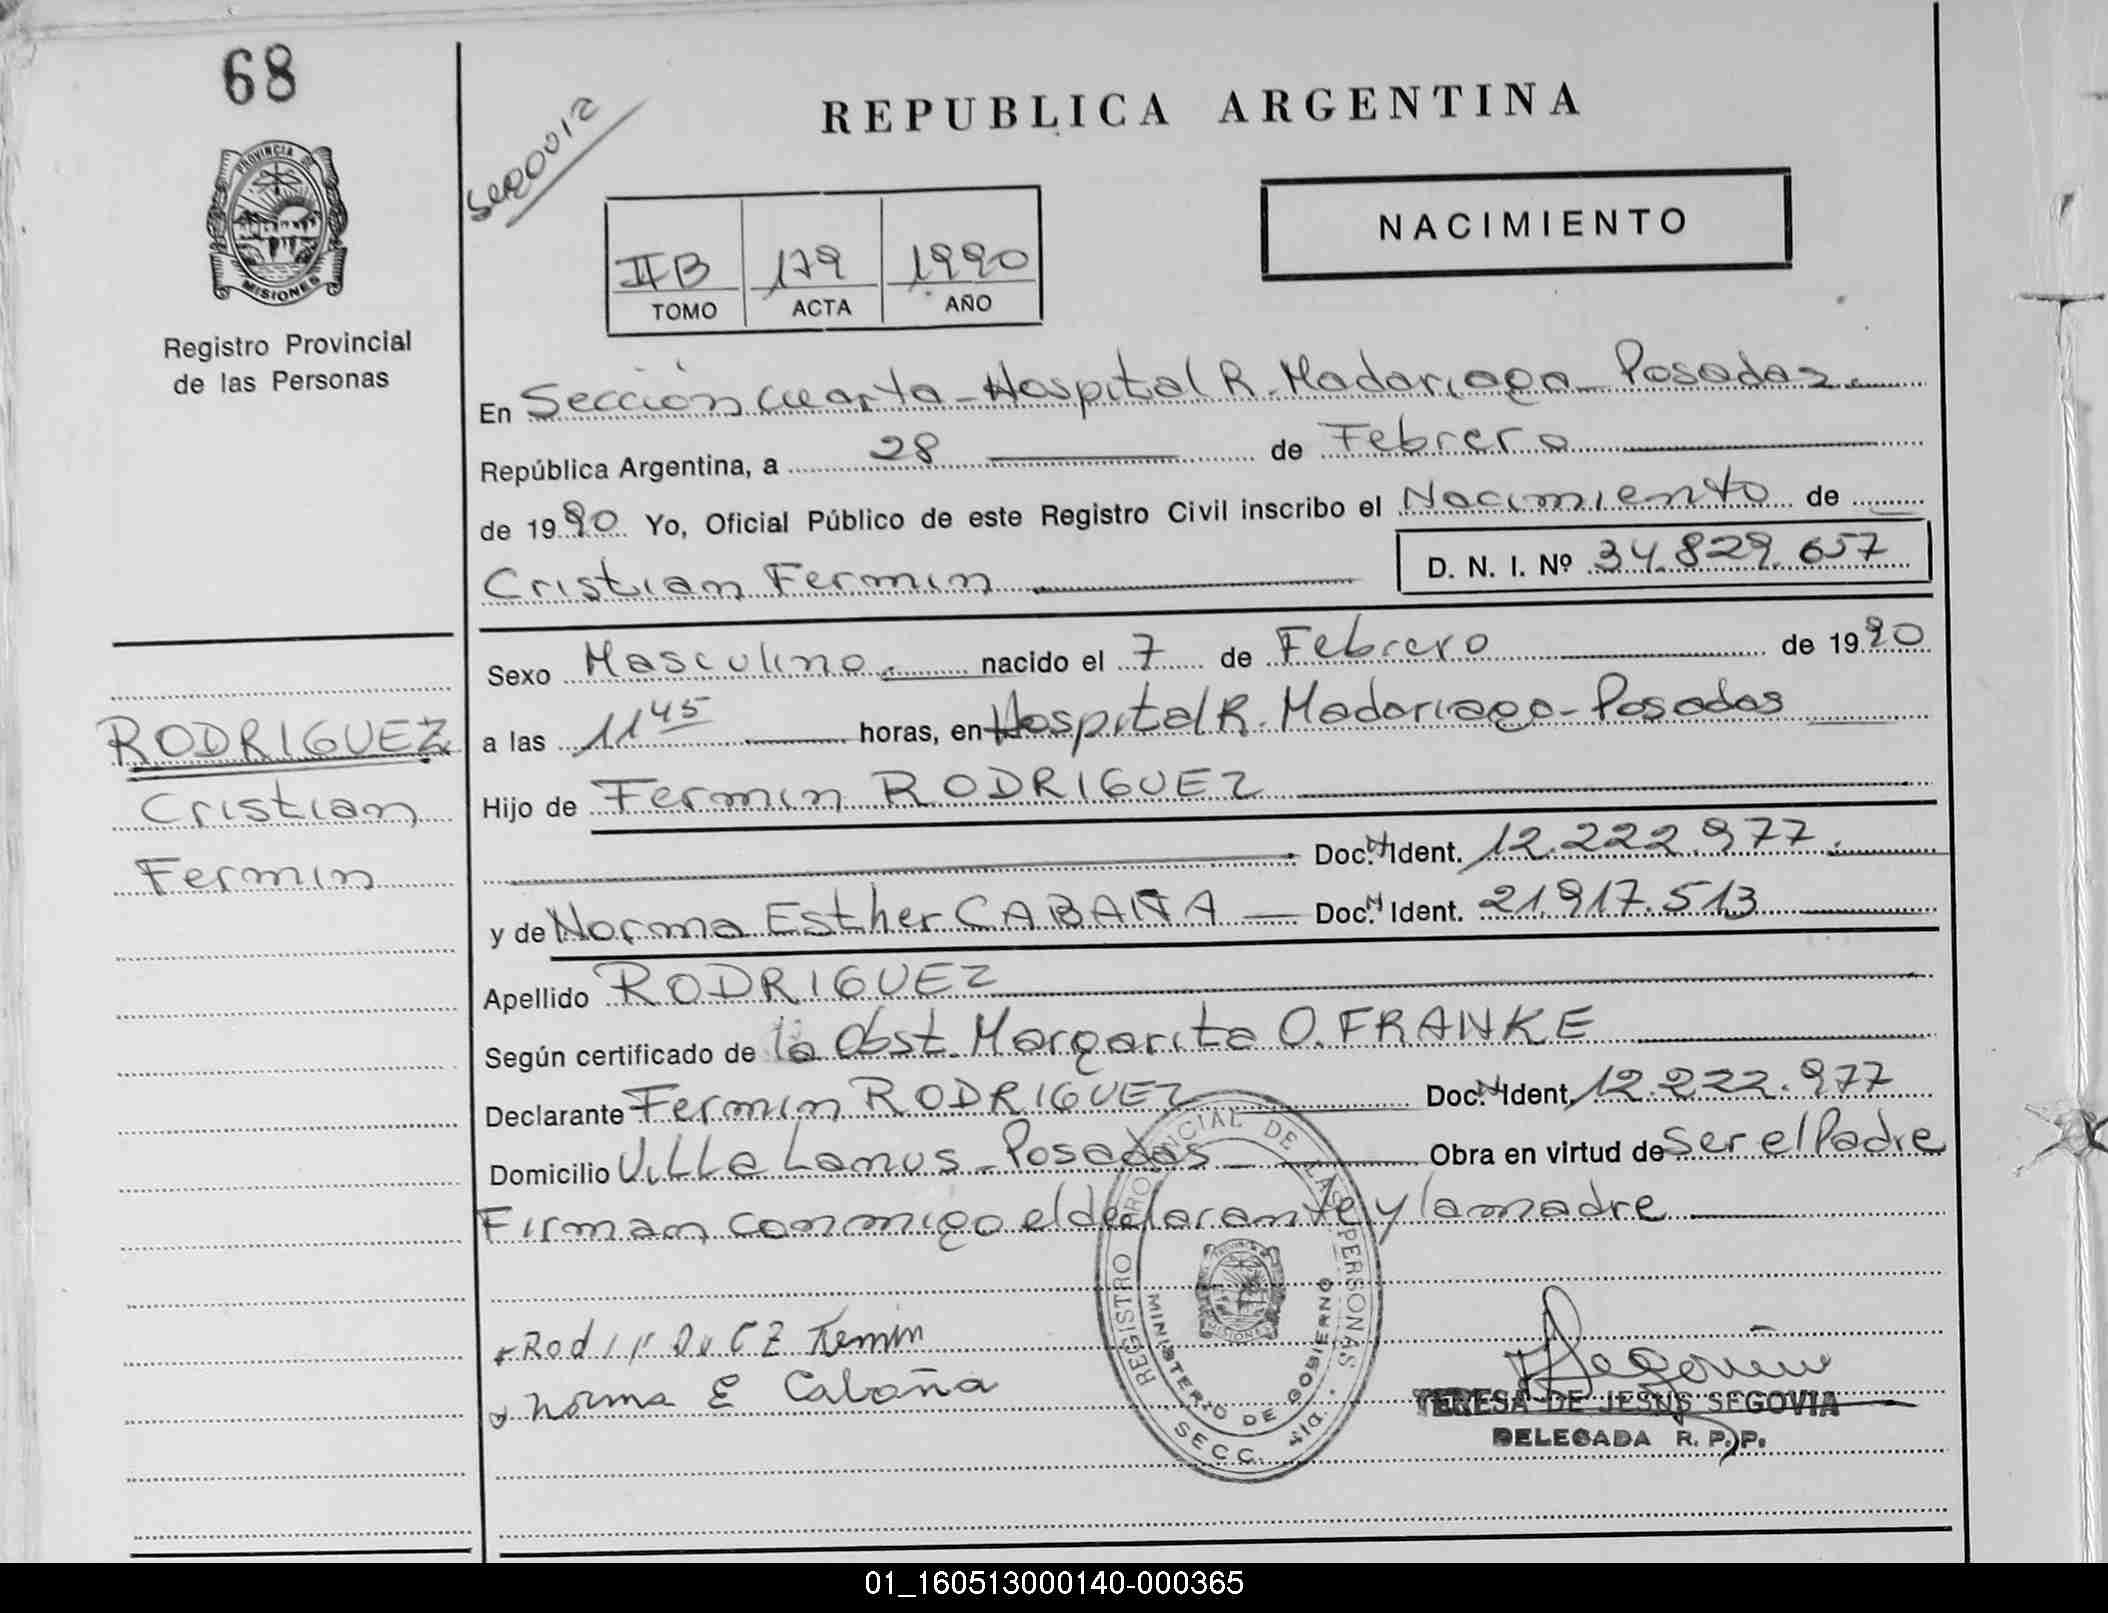 68
PROVINCIA DE
MISIONES
Registro Provincial
de las Personas
RODRIGUEZ
Cristian
Fermin
REPUBLICA ARGENTINA
NACIMIENTO
II B 179 1990
TOMO ACTA AÑO
En Sección cuarta - Hospital R. Madariaga - Posadas
República Argentina, a 28 de Febrero
de 1990 Yo, Oficial Público de este Registro Civil inscribo el Nacimiento de
Cristian Fermin D. N. I. Nº 34.829.657
Sexo Masculino nacido el 7 de Febrero de 1990
a las 11 45 horas, en Hospital R. Madariaga - Posadas
Hijo de Fermin RODRIGUEZ
Doc. Ident. 12.222.977
y de Norma Esther CABAÑA Doc. Ident. 21.917.513
Apellido RODRIGUEZ
Según certificado de la Obst. Margarita O. FRANKE
Declarante Fermin RODRIGUEZ Doc. Ident. 12.222.977
Domicilio Villa Lanus - Posadas Obra en virtud de Ser el Padre
Firman conmigo el declarante y la madre
Norma E Cabaña
REGISTRO PROVINCIAL DE LAS PERSONAS
MINISTERIO DE GOBIERNO
SECC. 4ta.
TERESA DE JESUS SEGOVIA
DELEGADA R. P. P.
01_160513000140-000365